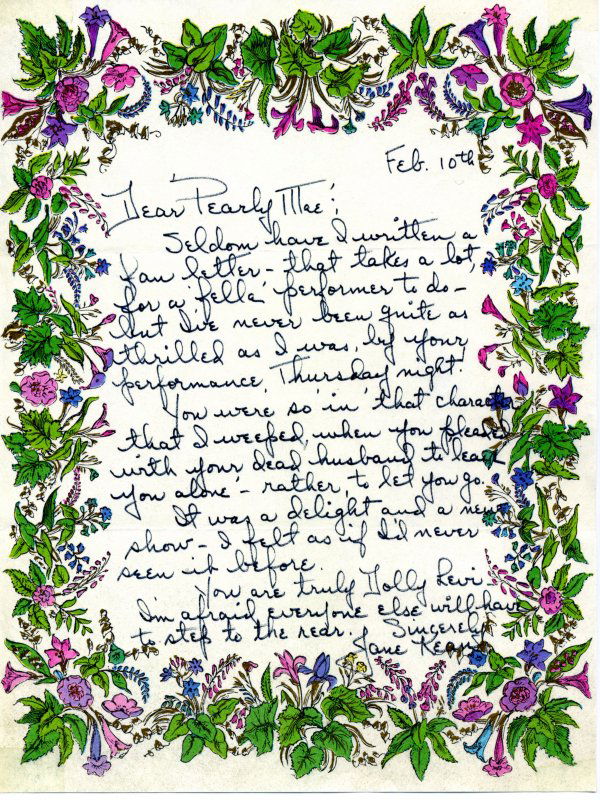 Feb. 10th
Dear Pearly Mae;
Seldom have I written a
fan letter - that takes a lot,
for a 'fella' performer to do -
but I've never been quite as
thrilled as I was, by your
performance, Thursday night!
You were so 'in' that character
that I weeped, when you pleaded
with your dead husband to leave
you alone - rather, to let you go.
It was a delight and a new
show - I felt as if I'd never
seen it before.
You are truly Dolly Levi -
I'm afraid everyone else will have
to step to the rear. Sincerely
Jane Kean